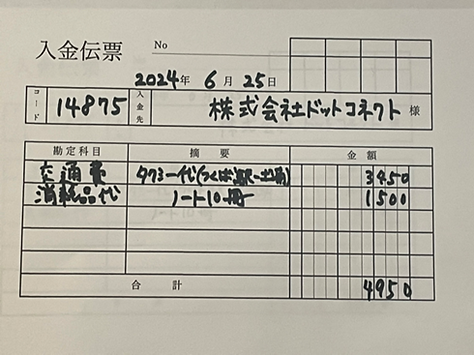 入金伝票 No
2024年 6月 25日
コード 14875 入金先 株式会社ドットコネクト 様
勘定科目 摘要 金額
交通費 タクシー代(つくば駅~出前) 3450
消耗品代 ノート10冊 1500
合計 4950